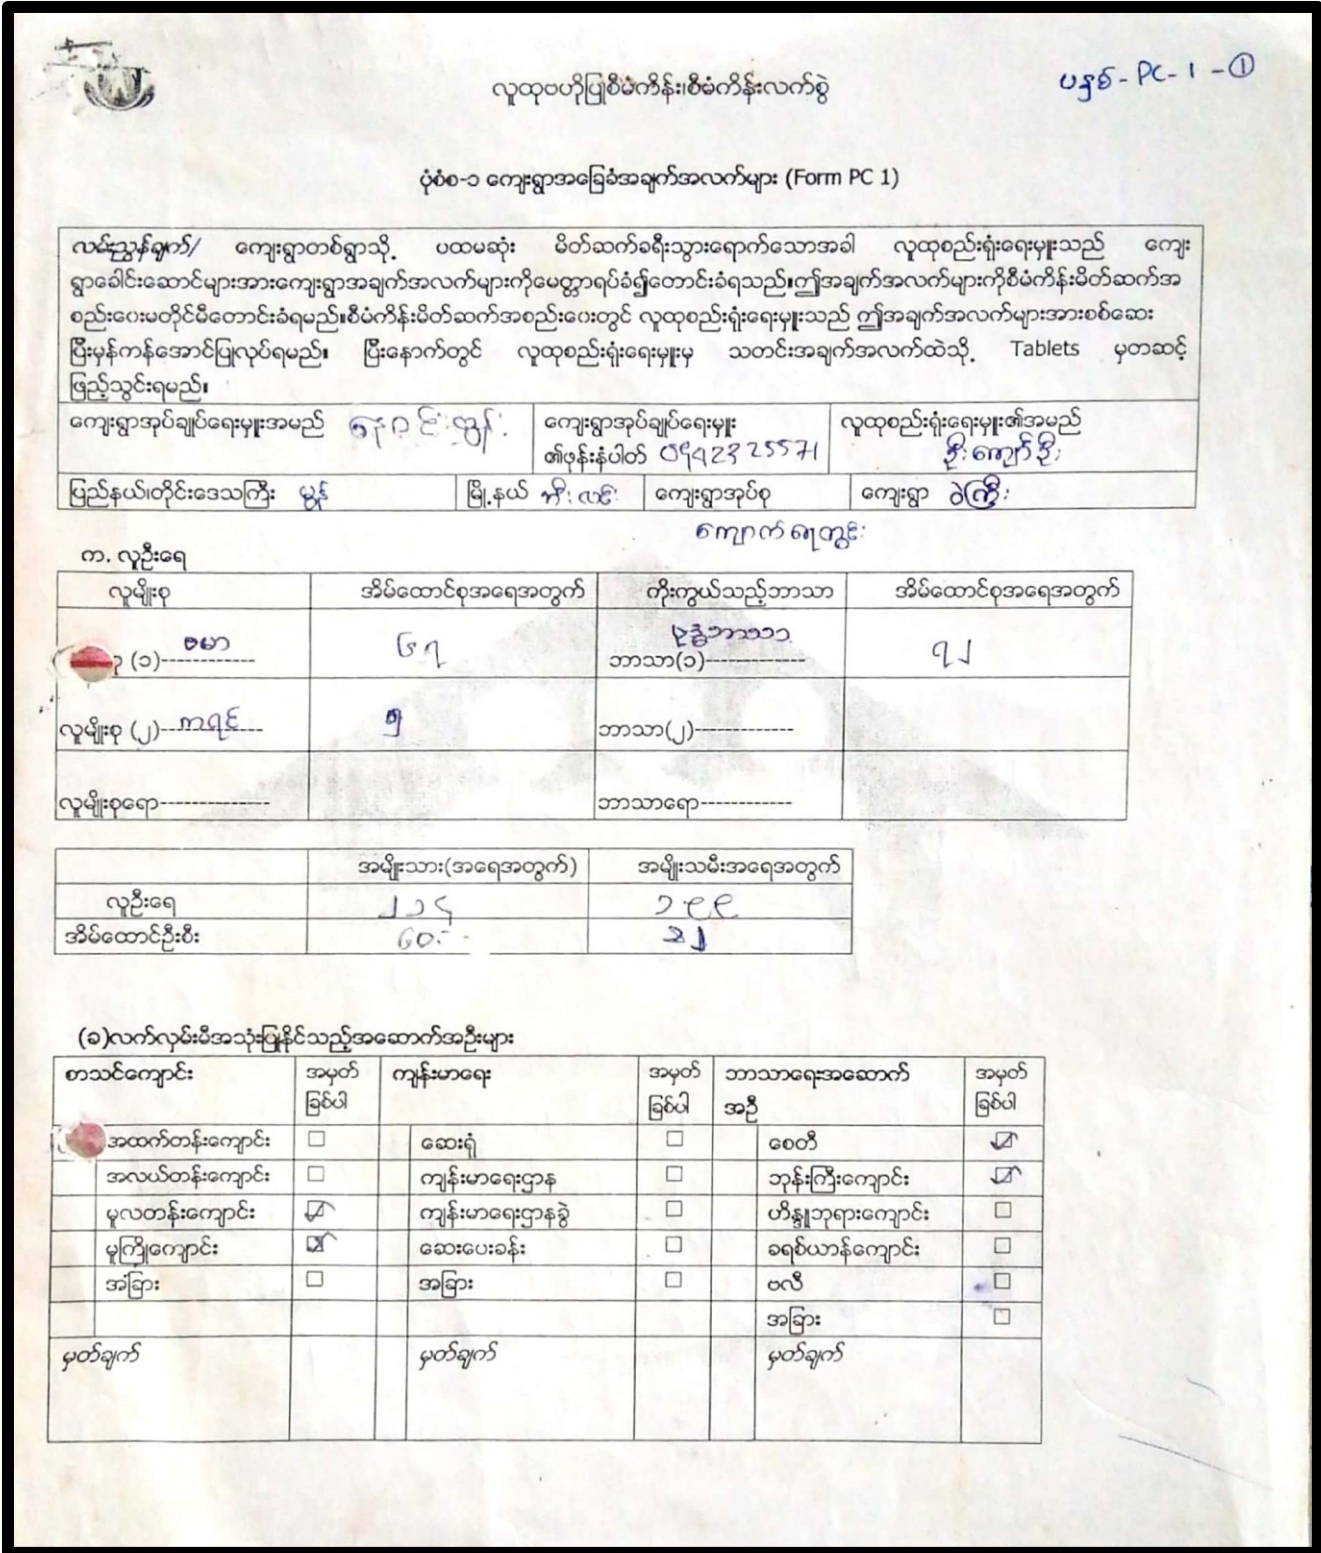 လူထုဗဟိုပြုစီမံကိန်း၊စီမံကိန်းလက်စွဲ
ပနစ် - PC - 1 - ①
ပုံစံစ-၁ ကျေးရွာအခြေခံအချက်အလက်များ (Form PC 1)
လမ်းညွှန်ချက်/ ကျေးရွာတစ်ရွာသို့ ပထမဆုံး မိတ်ဆက်ခရီးသွားရောက်သောအခါ လူထုစည်းရုံးရေးမှူးသည် ကျေး
ရွာခေါင်းဆောင်များအားကျေးရွာအချက်အလက်များကိုမေတ္တာရပ်ခံ၍တောင်းခံရသည်။ဤအချက်အလက်များကိုစီမံကိန်းမိတ်ဆက်အ
စည်းဝေးမတိုင်မီတောင်းခံရမည်။စီမံကိန်းမိတ်ဆက်အစည်းဝေးတွင် လူထုစည်းရုံးရေးမှူးသည် ဤအချက်အလက်များအားစစ်ဆေး
ပြီးမှန်ကန်အောင်ပြုလုပ်ရမည်။ ပြီးနောက်တွင် လူထုစည်းရုံးရေးမှူးမှ သတင်းအချက်အလက်ထဲသို့ Tablets မှတဆင့်
ဖြည့်သွင်းရမည်။
ကျေးရွာအုပ်ချုပ်ရေးမှူးအမည် နေလင်းထွန်း ကျေးရွာအုပ်ချုပ်ရေးမှူး လူထုစည်းရုံးရေးမှူး၏အမည်
၏ဖုန်းနံပါတ် 0942325571 ဦးကျော်ဦး
ပြည်နယ်၊တိုင်းဒေသကြီး မွန် မြို့နယ် ဘီးလင်း ကျေးရွာအုပ်စု ကျေးရွာ ဝဲကြီး
ကျောက်ရေတွင်း
က. လူဦးရေ
လူမျိုးစု အိမ်ထောင်စုအရေအတွက် ကိုးကွယ်သည့်ဘာသာ အိမ်ထောင်စုအရေအတွက်
ဗမာ ၆၇ ဗုဒ္ဓဘာသာ ၇၂
(၁)------------ ဘာသာ(၁)-------------
လူမျိုးစု (၂)--ကရင်--- ၅ ဘာသာ(၂)-------------
လူမျိုးစုရော-------------- ဘာသာရော------------
အမျိုးသား(အရေအတွက်) အမျိုးသမီးအရေအတွက်
လူဦးရေ ၂၁၄ ၁၉၉
အိမ်ထောင်ဦးစီး ၆၀
(ခ)လက်လှမ်းမီအသုံးပြုနိုင်သည့်အဆောက်အဦးများ
စာသင်ကျောင်း အမှတ် ကျန်းမာရေး အမှတ် ဘာသာရေးအဆောက် အမှတ်
ခြစ်ပါ ခြစ်ပါ အဦ ခြစ်ပါ
အထက်တန်းကျောင်း ☐ ဆေးရုံ ☐ စေတီ ☑
အလယ်တန်းကျောင်း ☐ ကျန်းမာရေးဌာန ☐ ဘုန်းကြီးကျောင်း ☑
မူလတန်းကျောင်း ☑ ကျန်းမာရေးဌာနခွဲ ☐ ဟိန္ဒူဘုရားကျောင်း ☐
မူကြိုကျောင်း ☑ ဆေးပေးခန်း ☐ ခရစ်ယာန်ကျောင်း ☐
အခြား ☐ အခြား ☐ ဗလီ ☐
အခြား ☐
မှတ်ချက် မှတ်ချက် မှတ်ချက်